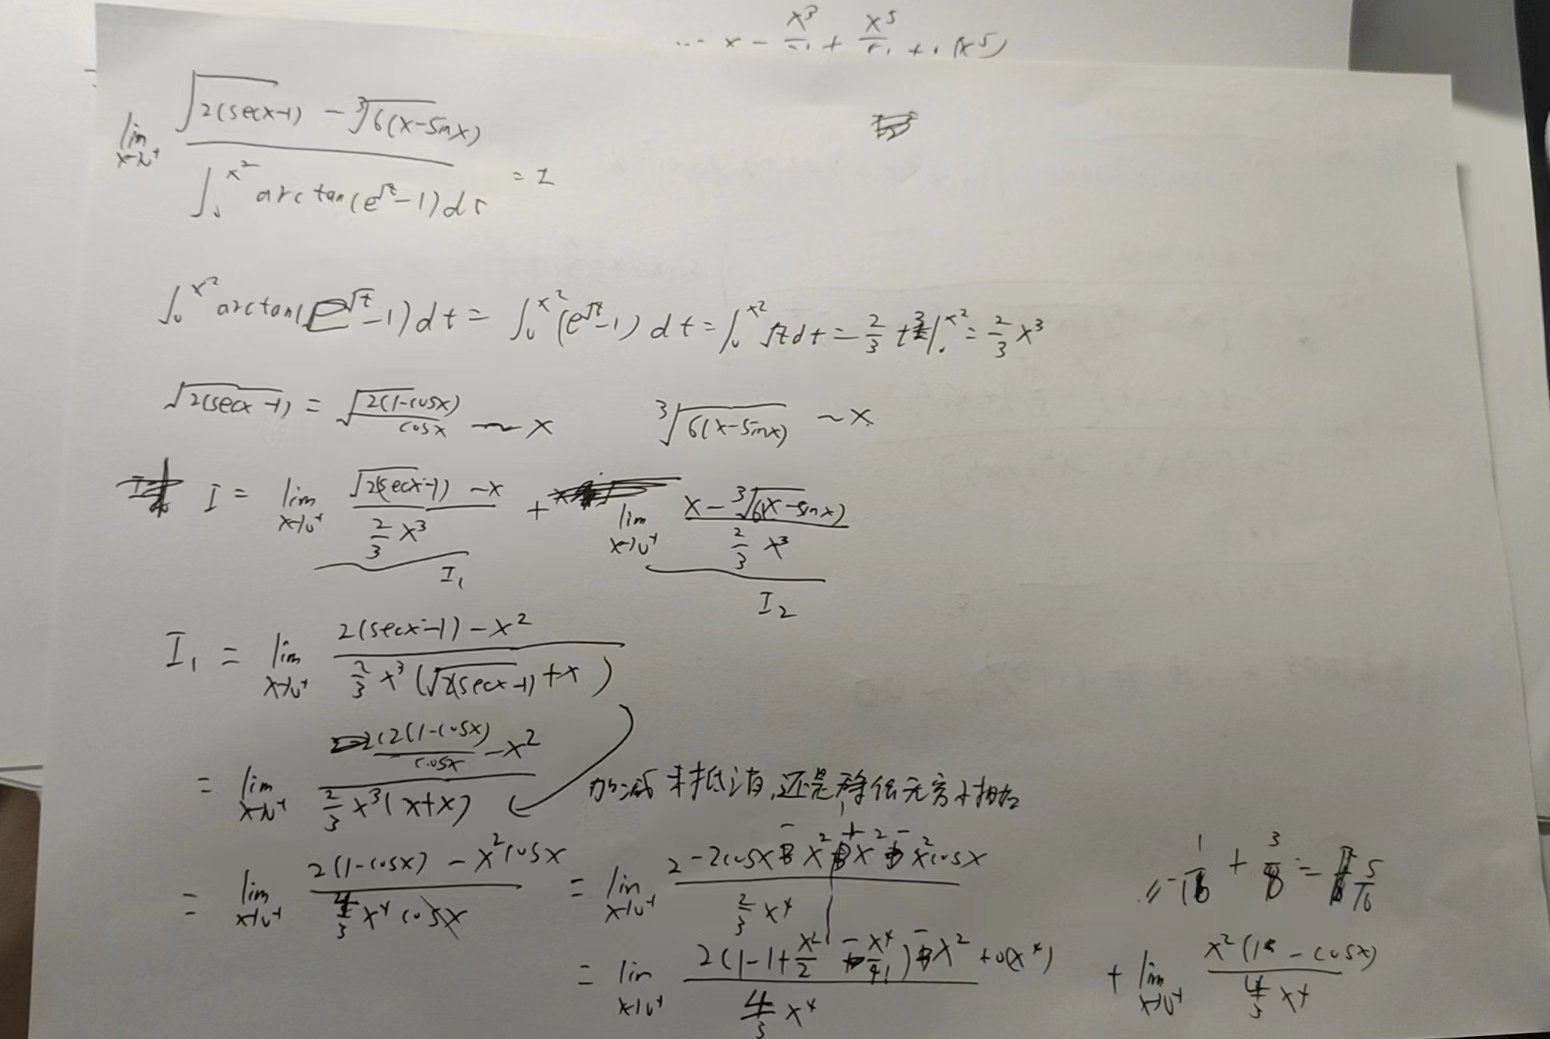 x - x³/ + x⁵/ + o(x⁵)
lim x→0⁺ (√(2(secx-1)) - ³√(6(x-sinx))) / (∫₀^(x²) arctan(e^√t - 1)dt) = I
∫₀^(x²) arctan(e^√t - 1)dt = ∫₀^(x²) (e^√t - 1)dt = ∫₀^(x²) √t dt = 2/3 t^(3/2) |₀^(x²) = 2/3 x³
√(2(secx-1)) = √(2(1-cosx)/cosx) ~ x ³√(6(x-sinx)) ~ x
I = lim x→0⁺ (√(2(secx-1)) - x) / (2/3 x³) + lim x→0⁺ (x - ³√(6(x-sinx))) / (2/3 x³)
I₁ I₂
I₁ = lim x→0⁺ (2(secx-1) - x²) / (2/3 x³(√(2(secx-1)) + x))
= lim x→0⁺ (2(1-cosx)/cosx - x²) / (2/3 x³(x+x)) 加减未抵消,还是 低无穷小
= lim x→0⁺ (2(1-cosx) - x²cosx) / (4/3 x⁴ cosx) = lim x→0⁺ (2 - 2cosx - x² + x² - x²cosx) / (2/3 x⁴) = -1/16 + 3/8 = 5/16
= lim x→0⁺ (2(1-1+x²/2 - x⁴/4!) - x² + o(x⁴)) / (4/3 x⁴) + lim x→0⁺ x²(1 - cosx) / (4/3 x⁴)